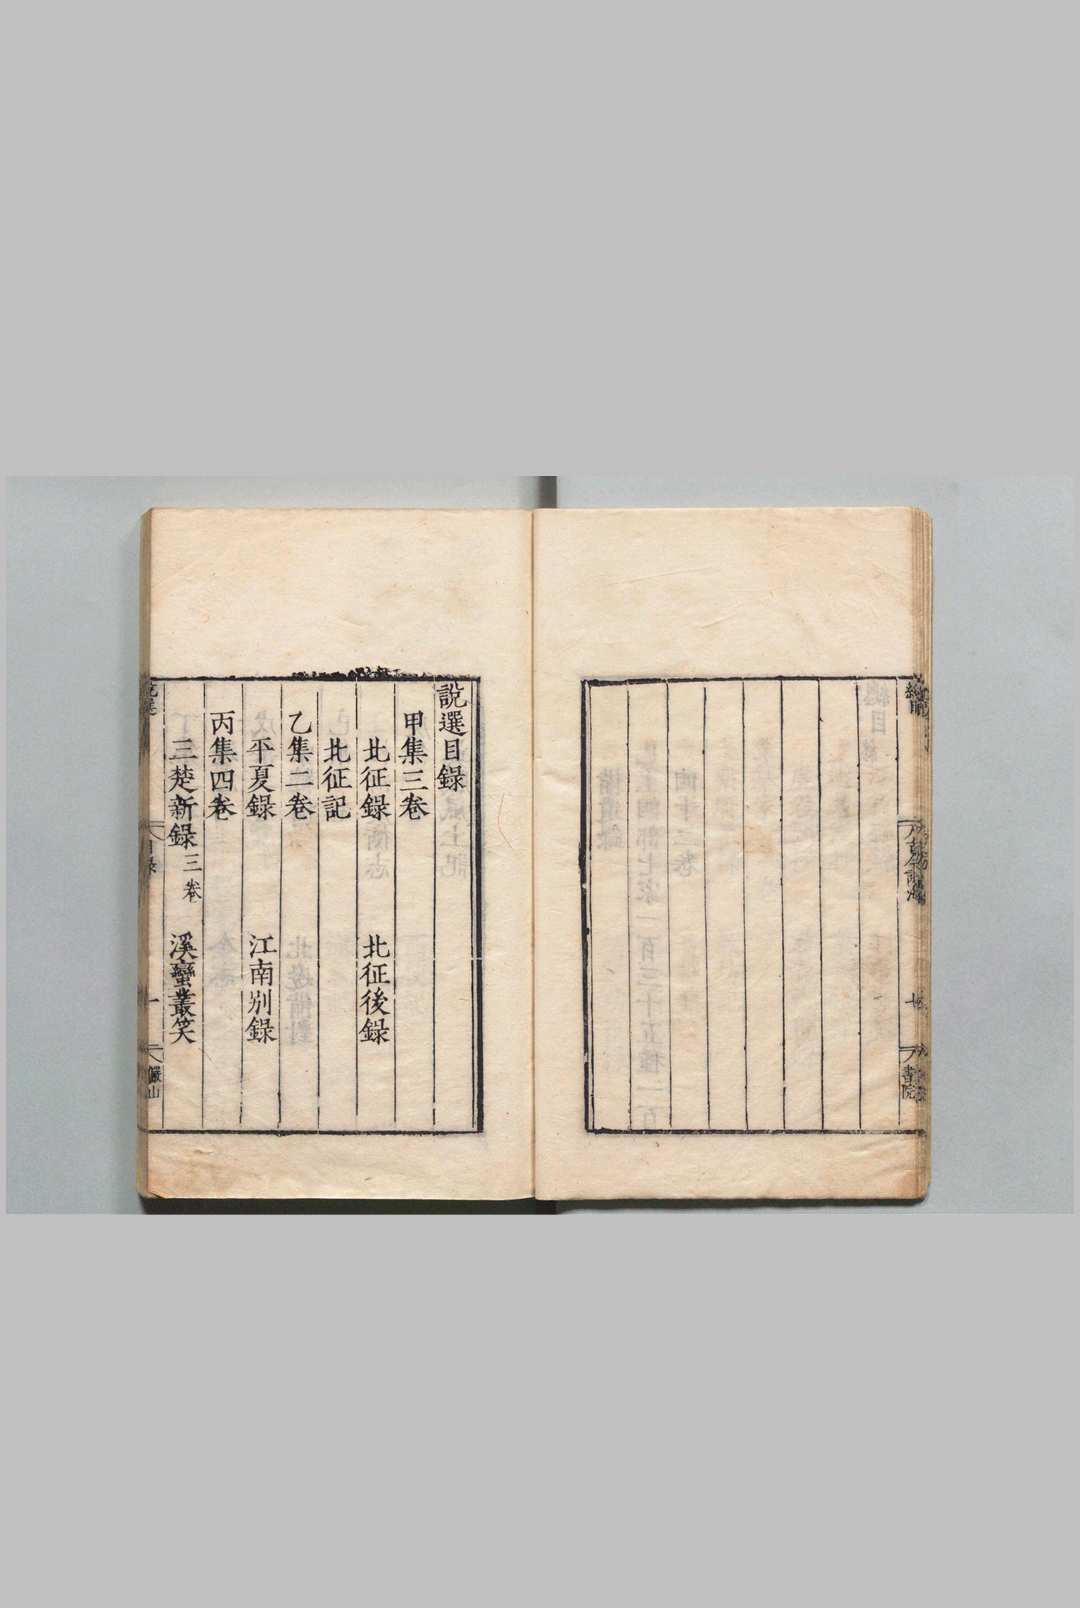 說選目錄
甲集三卷
北征錄 北征後錄
北征記
乙集二卷
平夏錄 江南別錄
丙集四卷
三楚新錄三卷 溪蠻叢笑
說選
目錄
一
儼山
書院